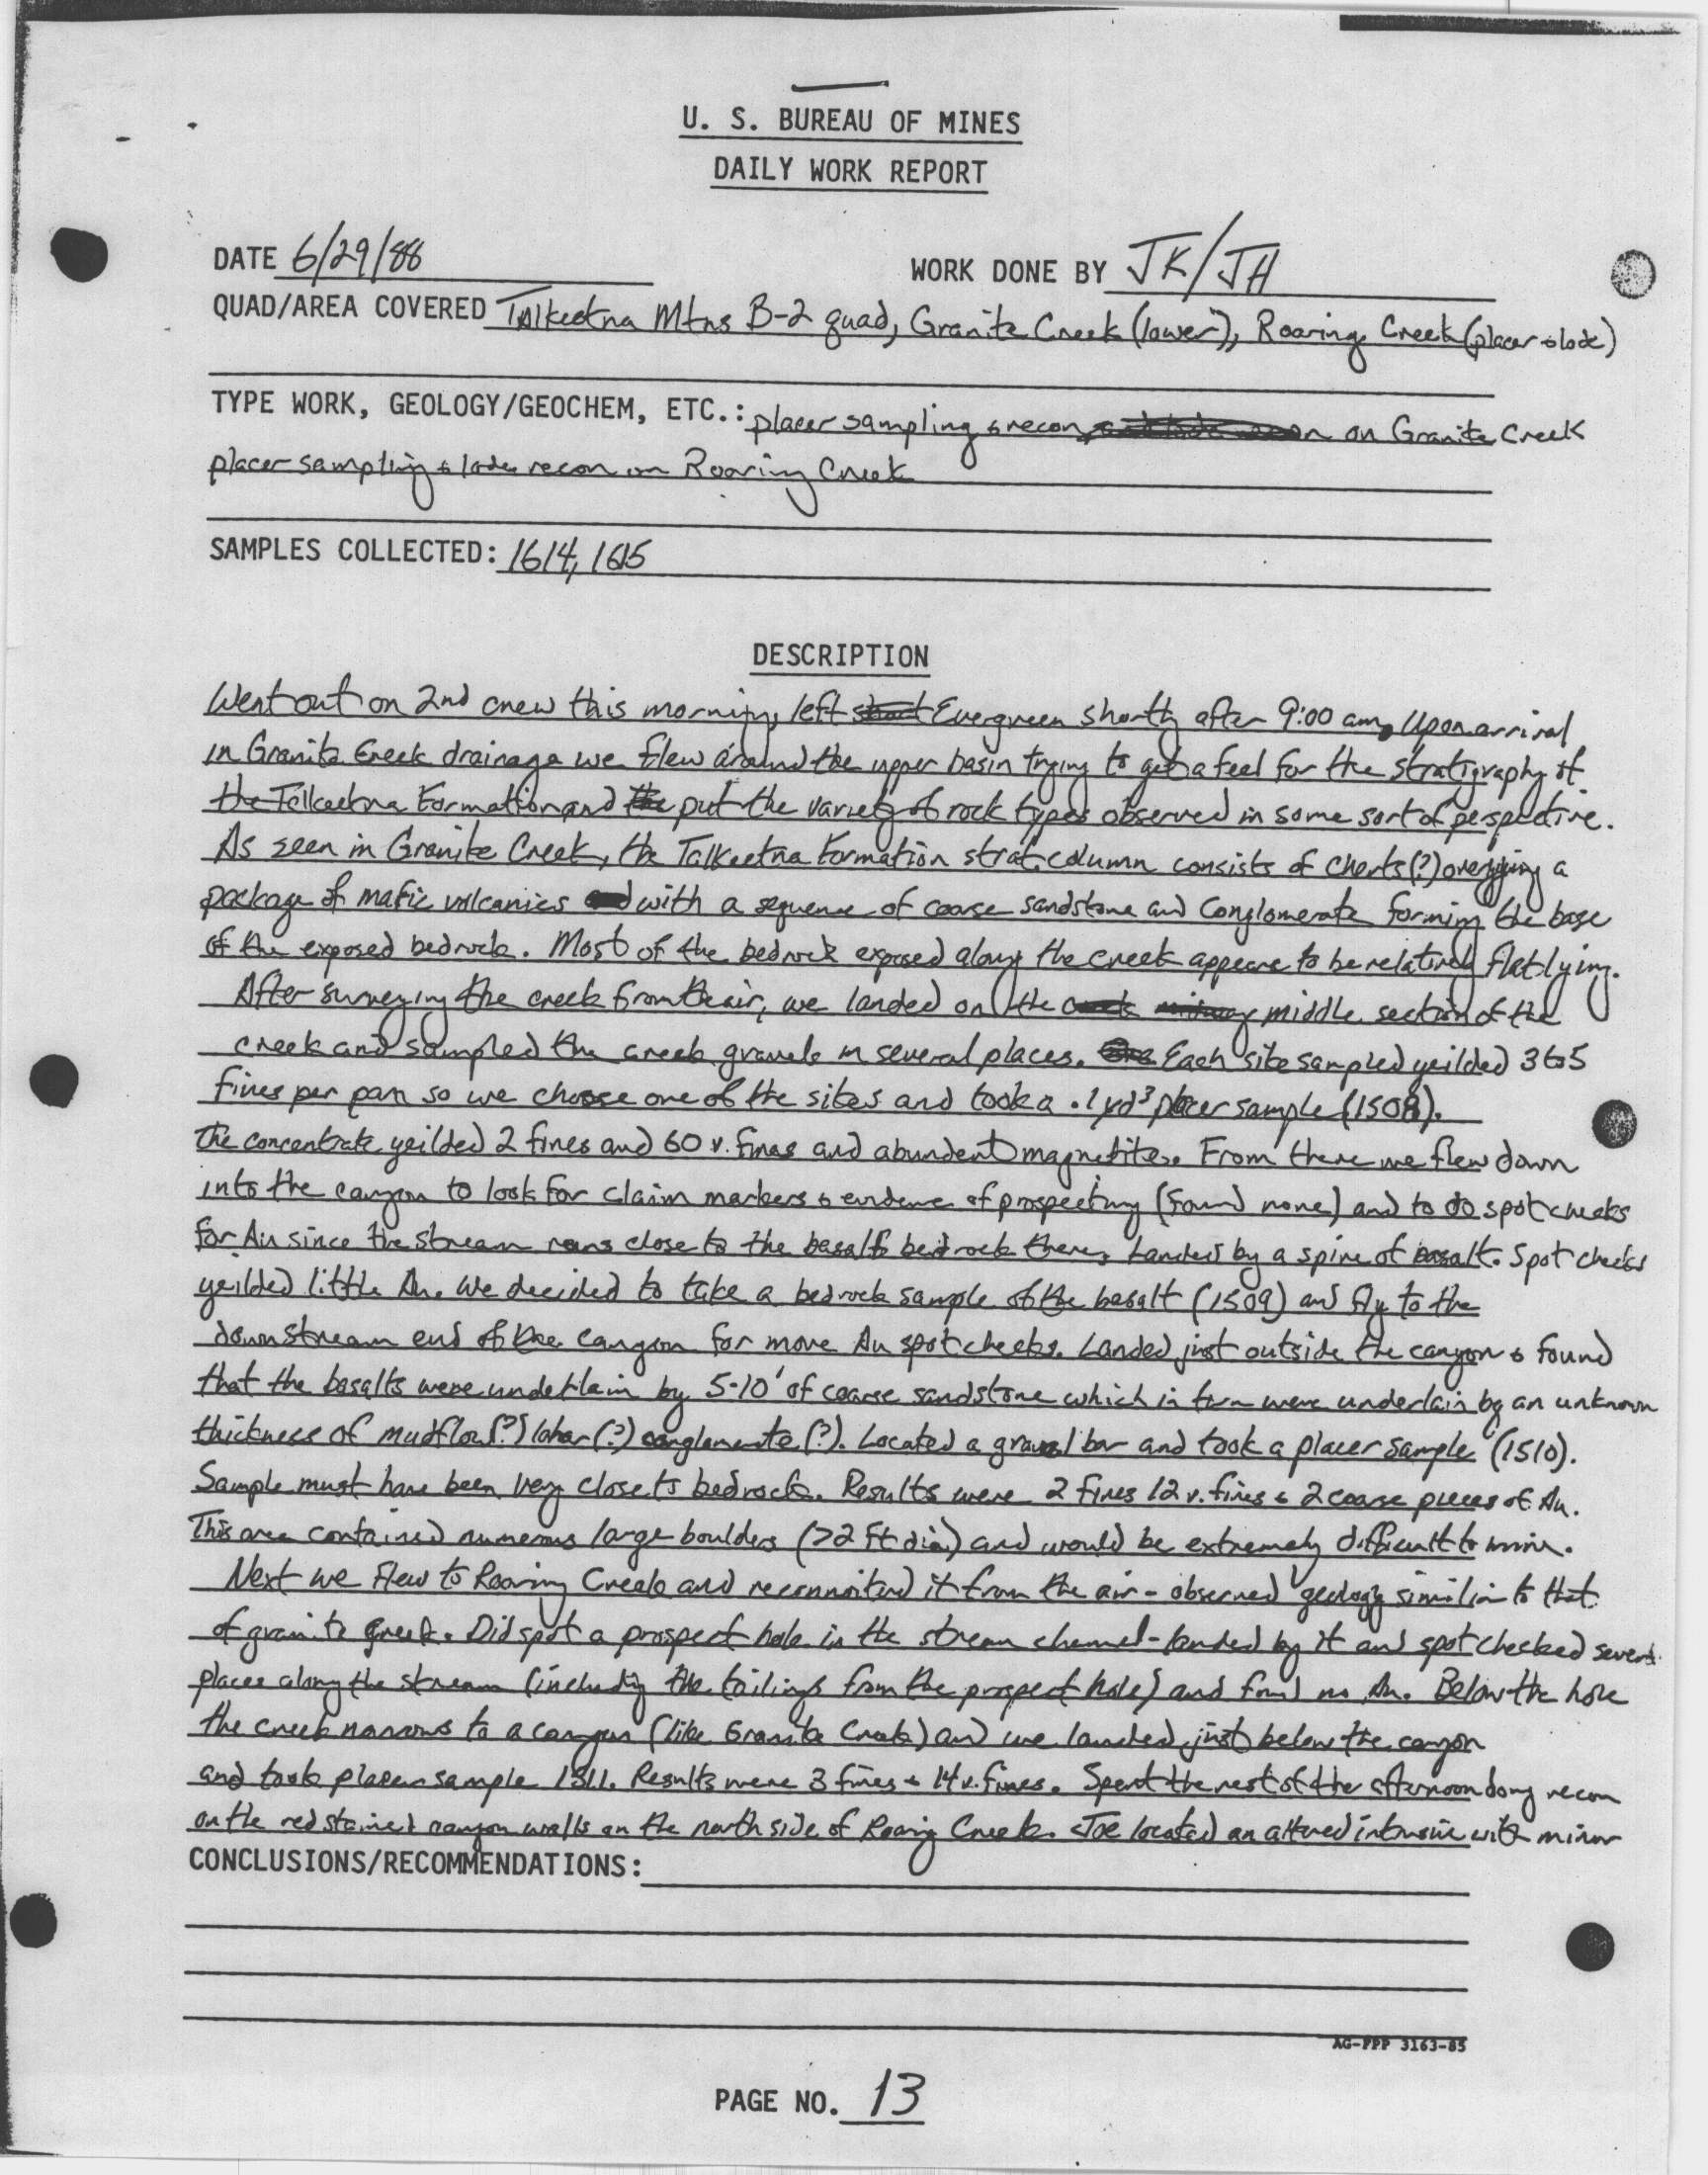 U. S. BUREAU OF MINES
DAILY WORK REPORT
DATE 6/29/88 WORK DONE BY JK/JH
QUAD/AREA COVERED Talkeetna Mtns B-2 quad, Granite Creek (lower), Roaring Creek (placer & lode)
TYPE WORK, GEOLOGY/GEOCHEM, ETC.: placer sampling & recon on Granite Creek
placer sampling & lode recon on Roaring Creek
SAMPLES COLLECTED: 1614, 1615
DESCRIPTION
Went out on 2nd crew this morning, left Evergreen shortly after 9:00 am. Upon arrival
in Granite Creek drainage we flew around the upper basin trying to get a feel for the stratigraphy of
the Talkeetna Formation and put the variety of rock types observed in some sort of perspective.
As seen in Granite Creek, the Talkeetna Formation strat. column consists of cherts(?) overlying a
package of mafic volcanics with a sequence of coarse sandstone and conglomerate forming the base
of the exposed bedrock. Most of the bedrock exposed along the creek appears to be relatively flat lying.
After surveying the creek from the air, we landed on the middle section of the
creek and sampled the creek gravels in several places. Each site sampled yeilded 3 to 5
fines per pan so we choose one of the sites and took a .1 yd³ placer sample (1508).
The concentrate yeilded 2 fines and 60 v. fines and abundent magnetite. From there we flew down
into the canyon to look for claim markers & evidence of prospecting (found none) and to do spot checks
for Au since the stream runs close to the basalt bedrock there. Landed by a spine of basalt. Spot checks
yeilded little Au. We decided to take a bedrock sample of the basalt (1509) and fly to the
downstream end of the canyon for more Au spot checks. Landed just outside the canyon & found
that the basalts were underlain by 5-10' of coarse sandstone which in turn were underlain by an unknown
thickness of mudflow(?) lahar(?) conglomerate(?). Located a gravel bar and took a placer sample (1510).
Sample must have been very close to bedrock. Results were 2 fines 12 v. fines & 2 coarse pieces of Au.
This area contained numerous large boulders (>2 ft dia) and would be extremely difficult to mine.
Next we flew to Roaring Creek and reconnoitered it from the air - observed geology similar to that
of granite creek. Did spot a prospect hole in the stream channel - landed by it and spot checked several
places along the stream (including the tailings from the prospect hole) and found no Au. Below the hole
the creek narrows to a canyon (like Granite Creek) and we landed just below the canyon
and took placer sample 1511. Results were 3 fines + 14 v. fines. Spent the rest of the afternoon doing recon
on the red stained canyon walls on the north side of Roaring Creek. Joe located an altered intrusive with minor
CONCLUSIONS/RECOMMENDATIONS:
AG-FPP 3163-85
PAGE NO. 13